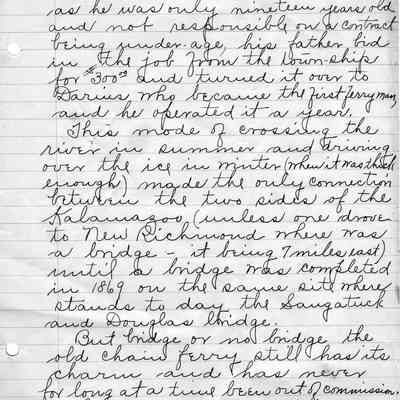 as he was only nineteen years old
and not responsible on a contract
being under-age, his father bid
in the job from the townships
for $300.00 and turned it over to
Darius who became the first ferryman,
and he operated it a year.
This mode of crossing the
river in summer and driving
over the ice in winter (when it was thick
enough) made the only connection
between the two sides of the
Kalamazoo, (unless one drove
to New Richmond where was
a bridge - it being 7 miles east)
until a bridge was completed
in 1869 on the same site where
stands to day the Saugatuck
and Douglas bridge.
But bridge or no bridge the
old chain ferry still has its
charm and has never
for long at a time been out of commission.